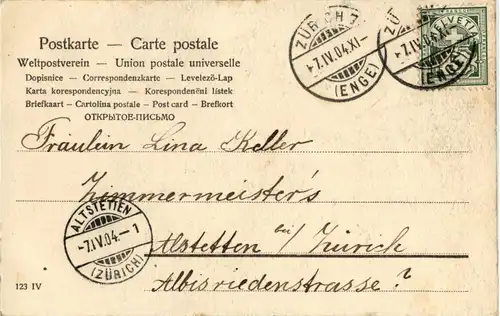 Postkarte — Carte postale
Weltpostverein — Union postale universelle
Dopisnice — Correspondenzkarte — Levelező-Lap
Karta korespondencyjna — Korespondenční lístek
Briefkaart — Cartolina postale — Post card — Brefkort
ОТКРЫТОЕ-ПИСЬМО
ZÜRICH 7
-7.IV.04.XI-
(ENGE)
ZÜRICH
-7.IV.04.XI-
(ENGE)
HELVETIA
Fräulein Lina Keller
Zimmermeister's
Alstetten bei/Zürich
Albisriedenstrasse?
ALTSTETTEN
-7.IV.04.-1
(ZÜRICH)
123 IV